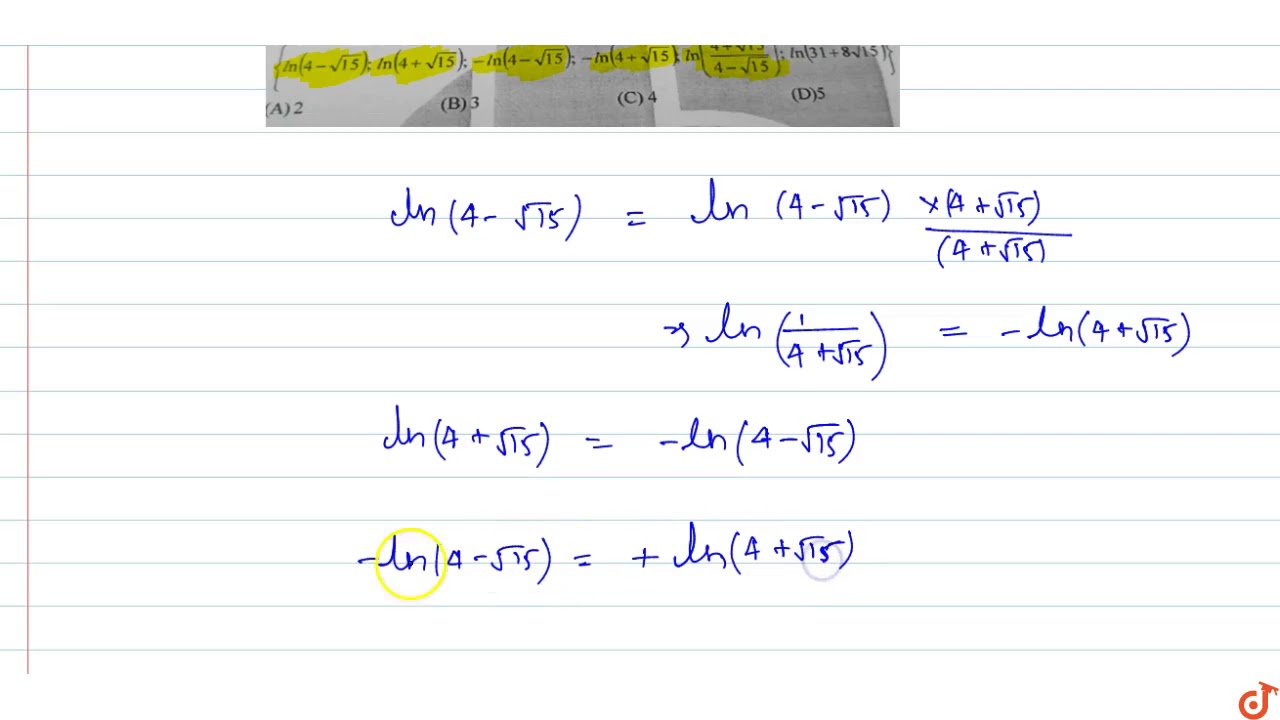 ln(4−√15); ln(4+√15); −ln(4−√15); −ln(4+√15); ln(4+√15/4−√15); ln(31+8√15)}
(A) 2 (B) 3 (C) 4 (D)5
ln(4-√15) = ln (4-√15) ×(4+√15)/(4+√15)
⇒ ln(1/4+√15) = -ln(4+√15)
ln(4+√15) = -ln(4-√15)
-ln(4-√15) = + ln(4+√15)